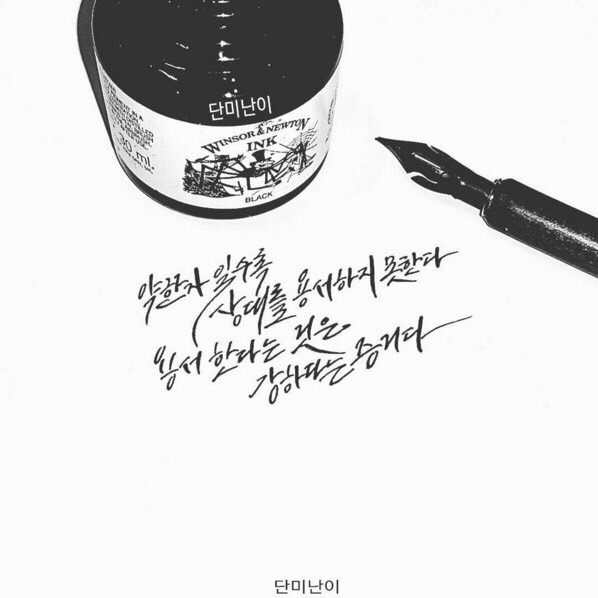 단미난이
WINSOR & NEWTON
INK
30 ml.
BLACK
약한자 일수록
상대를 용서하지 못한다
용서 한다는 것은
강하다는 증거다
단미난이